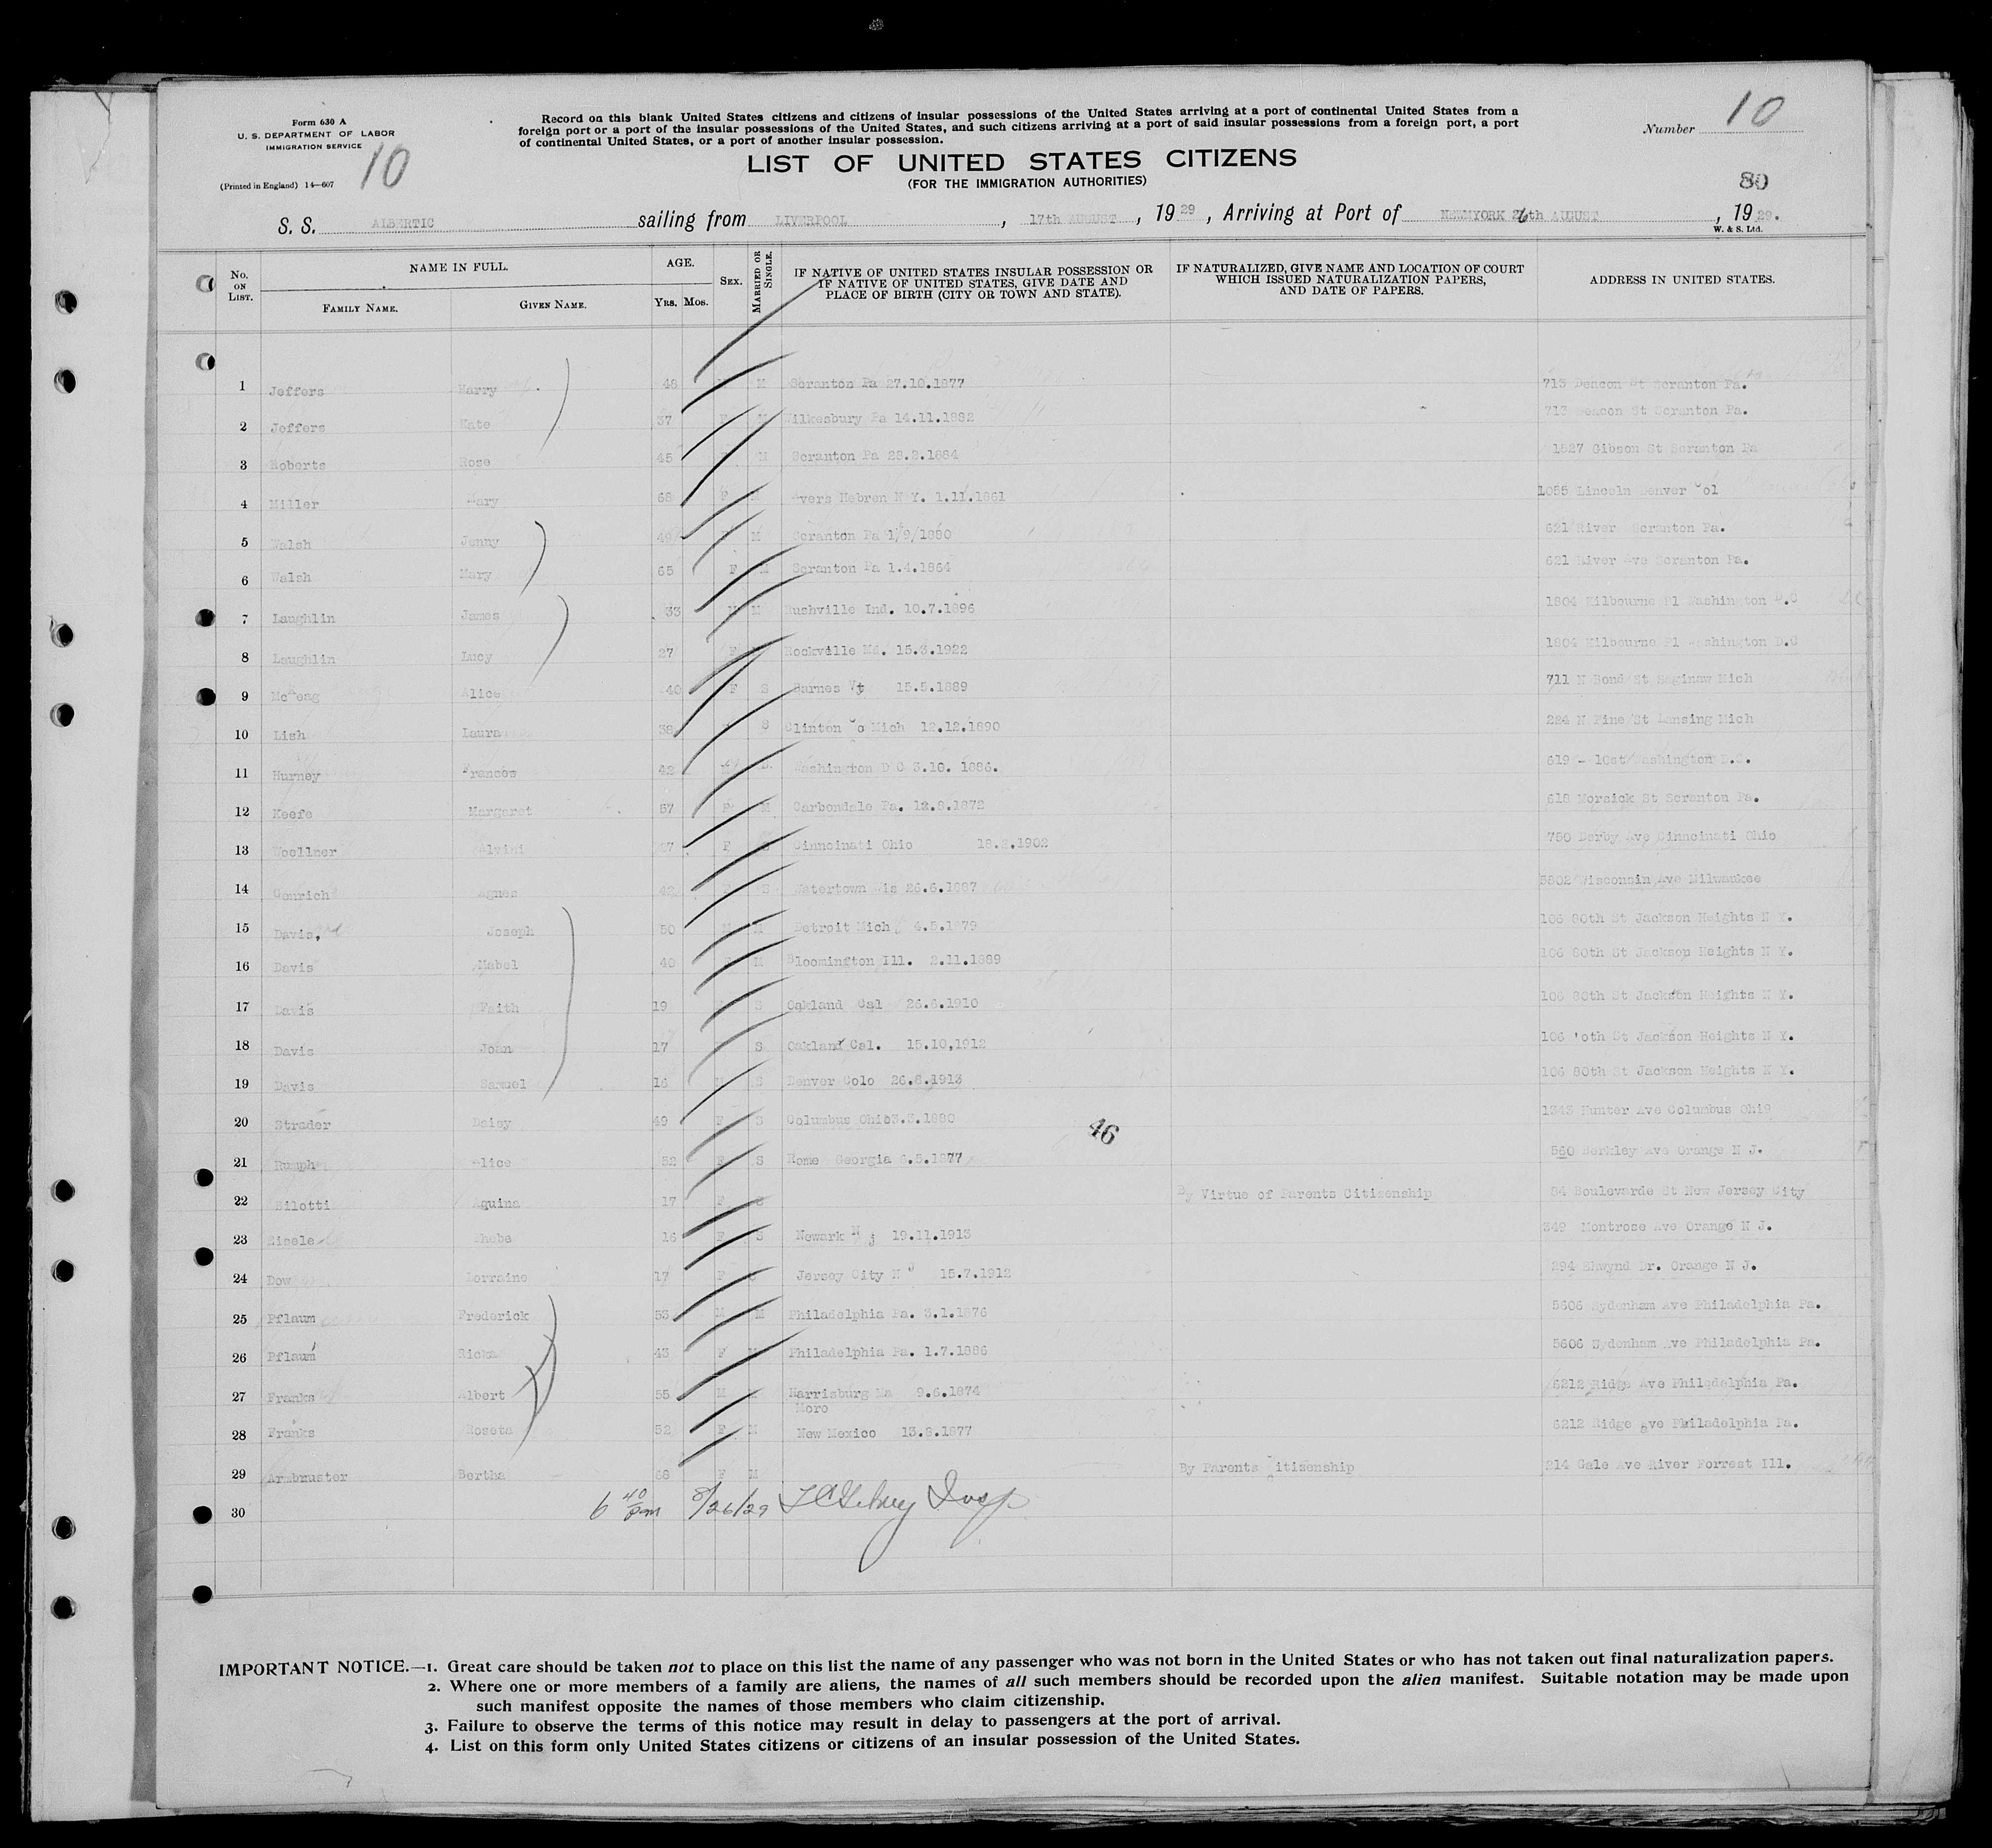 Form 630 A
U. S. DEPARTMENT OF LABOR
IMMIGRATION SERVICE
(Printed in England) 14—607
10
Record on this blank United States citizens and citizens of insular possessions of the United States arriving at a port of continental United States from a
foreign port or a port of the insular possessions of the United States, and such citizens arriving at a port of said insular possessions from a foreign port, a port
of continental United States, or a port of another insular possession.
Number 10
LIST OF UNITED STATES CITIZENS
(FOR THE IMMIGRATION AUTHORITIES)
80
S. S. ALBERTIC sailing from LIVERPOOL, 17th AUGUST, 1929, Arriving at Port of NEWYORK 26th AUGUST, 1929.
W. & S. Ltd.
No. ON LIST. NAME IN FULL. FAMILY NAME. GIVEN NAME. AGE. Yrs. Mos. SEX. MARRIED OR SINGLE. IF NATIVE OF UNITED STATES INSULAR POSSESSION OR IF NATIVE OF UNITED STATES, GIVE DATE AND PLACE OF BIRTH (CITY OR TOWN AND STATE). IF NATURALIZED, GIVE NAME AND LOCATION OF COURT WHICH ISSUED NATURALIZATION PAPERS, AND DATE OF PAPERS. ADDRESS IN UNITED STATES.
1 Jeffers Harry 48 M Scranton Pa 27.10.1877 713 Deacon St Scranton Pa.
2 Jeffers Kate 37 M Wilkesbury Pa 14.11.1882 713 Deacon St Scranton Pa.
3 Roberts Rose 45 M Scranton Pa 28.2.1884 1527 Gibson St Scranton Pa
4 Miller Mary 68 F M vers Hebren N Y. 1.11.1861 1055 Lincoln Denver Col
5 Walsh Jenny 49 M Scranton Pa 1/9/1880 621 River Scranton Pa.
6 Walsh Mary 65 F M Scranton Pa 1.4.1864 621 River Ave Scranton Pa.
7 Laughlin James 33 M M Rushville Ind. 10.7.1896 1804 Kilbourne Pl Washington D.C
8 Laughlin Lucy 27 F Rockville Md. 15.3.1922 1804 Kilbourne Pl Washington D.C
9 Alice 40 F S Barnes Vt 15.5.1889 711 N Bond St Saginaw Mich
10 Lish Laura 38 S Clinton Co Mich 12.12.1890 224 N Pine St Lansing Mich
11 Hurney Frances 42 Washington D C 3.10.1886. 619 - 10st Washington D.C.
12 Keefe Margaret 57 F M Carbondale Pa. 12.8.1872 618 Morsick St Scranton Pa.
13 Woellner Alvini 27 F S Cinncinati Ohio 18.2.1902 750 Derby Ave Cinncinati Ohio
14 Genrich Agnes 42 S Watertown Wis 26.6.1887 5802 Wisconsin Ave Milwaukee
15 Davis, Joseph 50 M M Detroit Mich 4.5.1879 106 80th St Jackson Heights N Y.
16 Davis Mabel 40 M Bloomington Ill. 2.11.1889 106 80th St Jackson Heights N Y.
17 Davis Faith 19 S Oakland Cal 26.6.1910 106 80th St Jackson Heights N Y.
18 Davis Joan 17 S Oakland Cal. 15.10.1912 106 'oth St Jackson Heights N Y.
19 Davis Samuel 16 S Denver Colo 26.8.1913 106 80th St Jackson Heights N Y.
20 Strader Daisy 49 F S Columbus Ohio 3.3.1880 1343 Hunter Ave Columbus Ohio
46
21 Rumph Alice 52 F S Rome Georgia 6.5.1877 560 Berkley Ave Orange N J.
22 Silotti Aquina 17 F S By Virtue of Parents Citizenship 84 Boulevarde St New Jersey City
23 Eisele Phebe 16 F S Newark N J 19.11.1913 349 Montrose Ave Orange N J.
24 Dow Lorraine 17 F Jersey City N J 15.7.1912 294 Elwynd Dr. Orange N J.
25 Pflaum Frederick 53 M M Philadelphia Pa. 3.1.1876 5606 Sydenham Ave Philadelphia Pa.
26 Pflaum Ricka 43 F Philadelphia Pa. 1.7.1886 5606 Sydenham Ave Philadelphia Pa.
27 Franks Albert 55 M Harrisburg Pa 9.6.1874 6212 Ridge Ave Philadelphia Pa.
28 Franks Roseta 52 F M Moro New Mexico 13.8.1877 6212 Ridge Ave Philadelphia Pa.
29 Armbruster Bertha 68 F M By Parents Citizenship 214 Gale Ave River Forrest Ill.
30
6 40 pm 8/26/29 Insp
IMPORTANT NOTICE.—1. Great care should be taken not to place on this list the name of any passenger who was not born in the United States or who has not taken out final naturalization papers.
2. Where one or more members of a family are aliens, the names of all such members should be recorded upon the alien manifest. Suitable notation may be made upon
such manifest opposite the names of those members who claim citizenship.
3. Failure to observe the terms of this notice may result in delay to passengers at the port of arrival.
4. List on this form only United States citizens or citizens of an insular possession of the United States.